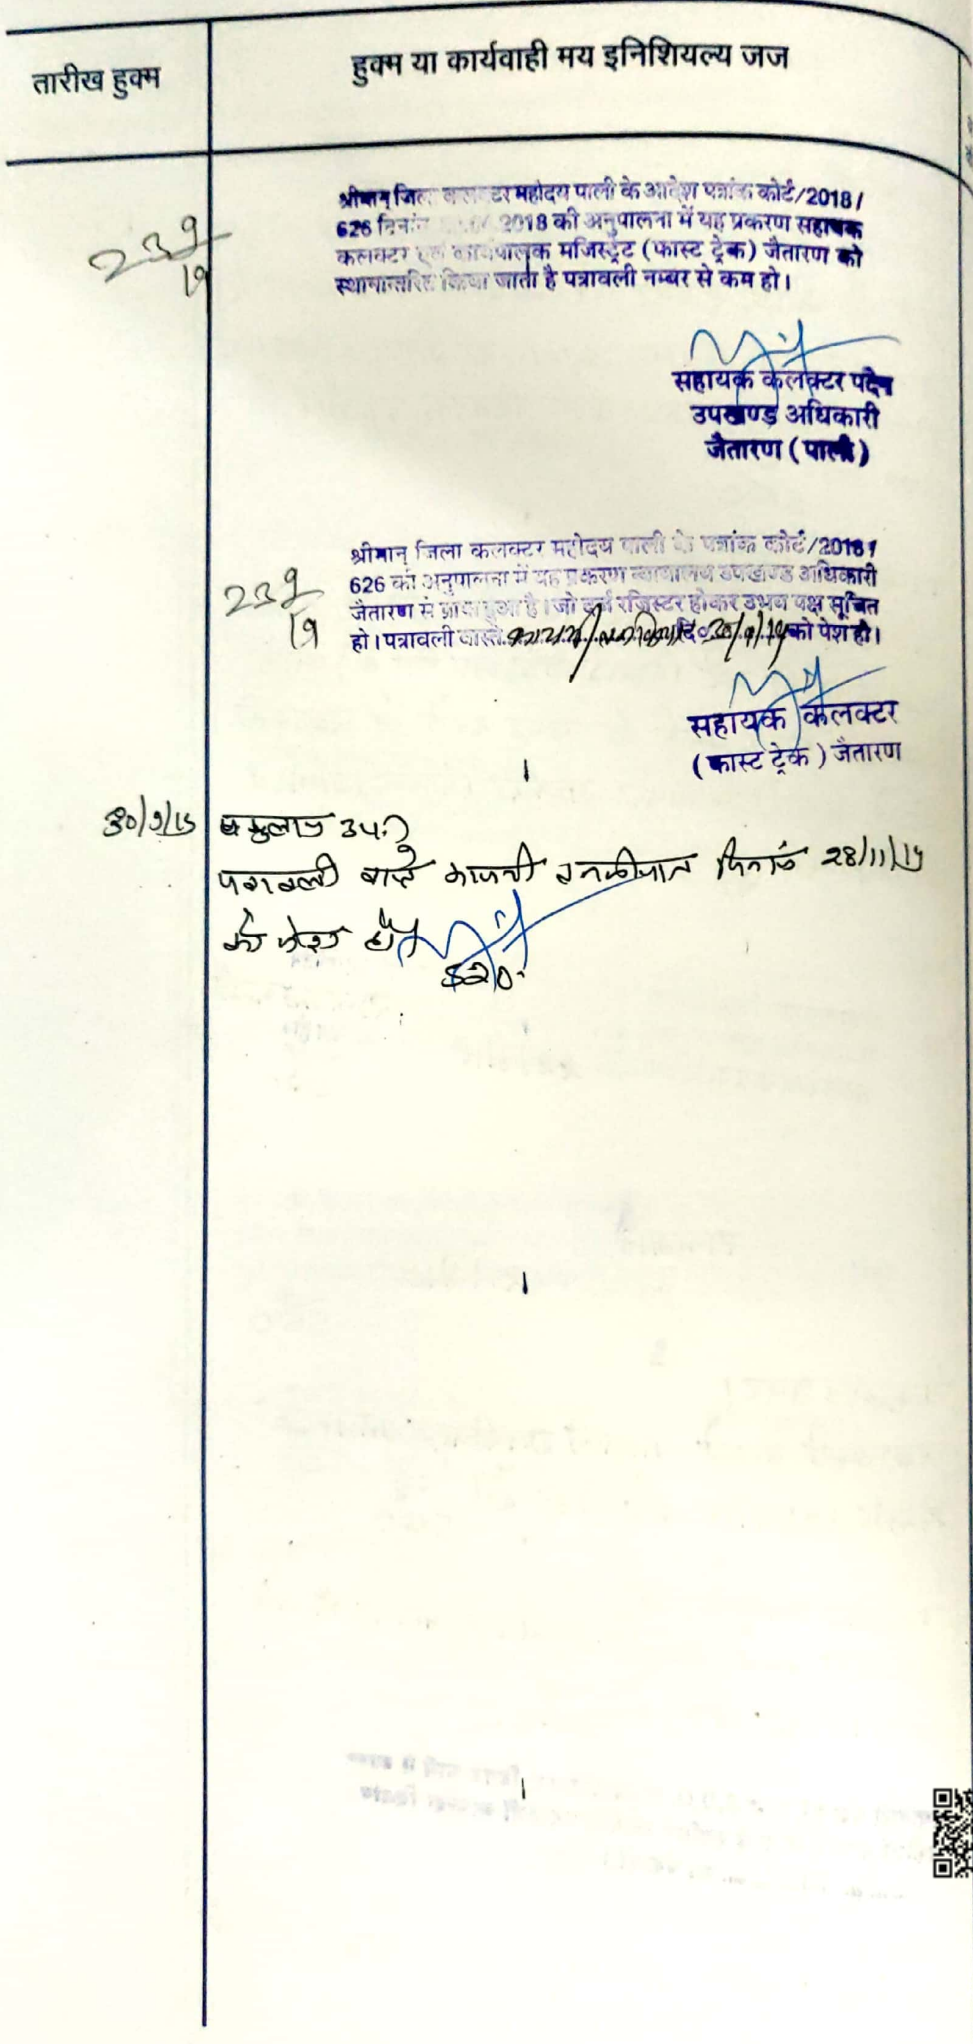 तारीख हुक्म
हुक्म या कार्यवाही मय इनिशियल्य जज
239
19
श्रीमान् जिला कलक्टर महोदय पाली के आदेश पत्रांक कोर्ट/2018/
626 दिनांक 2018 की अनुपालना में यह प्रकरण सहायक
कलक्टर एवं कार्यपालक मजिस्ट्रेट (फास्ट ट्रेक) जैतारण को
स्थानान्तरित किया जाता है पत्रावली नम्बर से कम हो।
सहायक कलक्टर पदेन
उपखण्ड अधिकारी
जैतारण (पाली)
239
19
श्रीमान् जिला कलक्टर महोदय पाली के पत्रांक कोर्ट/2018/
626 की अनुपालना में यह प्रकरण न्यायालय उपखण्ड अधिकारी
जैतारण से प्राप्त हुआ है। जो दर्ज रजिस्टर होकर उभय पक्ष सूचित
हो। पत्रावली वास्ते दि० 30/9/19 को पेश हो।
सहायक कलक्टर
(फास्ट ट्रेक) जैतारण
30/9/19
उप.
पत्रावली वास्ते दिनांक 28/11/19
को पेश हो।